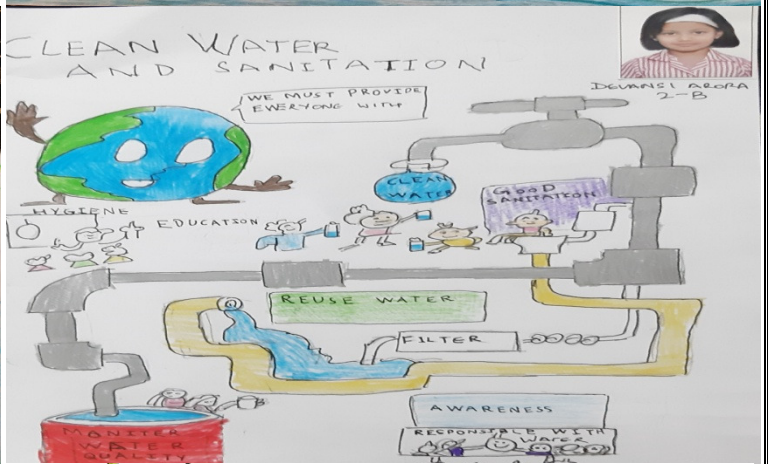 CLEAN WATER
AND SANITATION
DEVANSI ARORA
2-B
WE MUST PROVIDE
EVERYONE WITH
CLEAN
WATER
GOOD
SANITATION
HYGIENE
EDUCATION
REUSE WATER
FILTER
AWARENESS
RESPONSIBLE WITH
WATER
MONITER
WATER
QUALITY